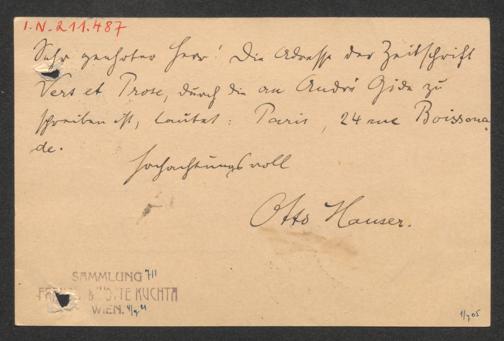 I.N. 211.487
Sehr geehrter Herr! Die Adresse der Zeitschrift
Vers et Prose, durch die an André Gide zu
schreiben ist, lautet: Paris, 24 rue Boissona
de.
Hochachtungsvoll
Otto Hauser.
SAMMLUNG 711
KUCHTA
WIEN.